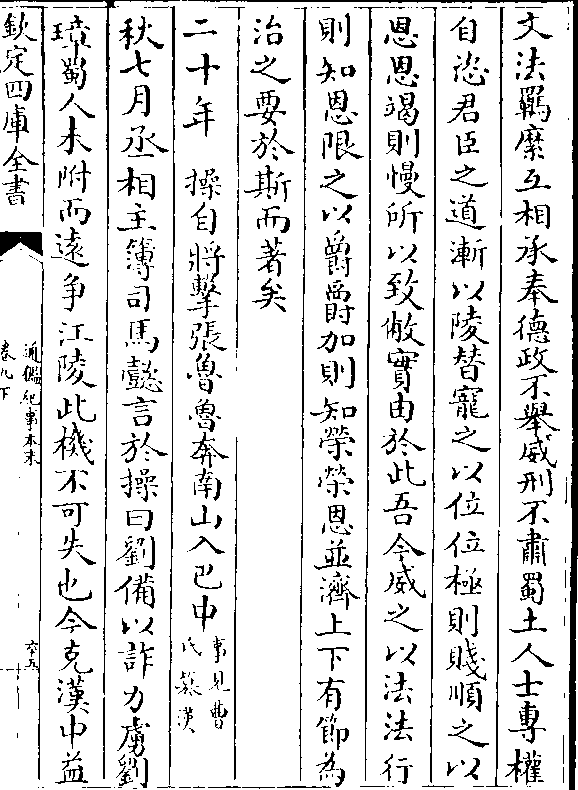 文法羈縻互相承奉德政不舉威刑不肅蜀土人士專權
自恣君臣之道漸以陵替寵之以位位極則賤順之以
恩恩竭則慢所以致敝實由於此吾今威之以法法行
則知恩限之以爵爵加則知榮榮恩並濟上下有節為
治之要於斯而著矣
二十年　操自將擊張魯魯奔南山入巴中事見曹氏簒漢
秋七月丞相主簿司馬懿言於操曰劉備以詐力虜劉
璋蜀人未附而遠爭江陵此機不可失也今克漢中益
欽定四庫全書
通鑑紀事本末
卷九下
六十五